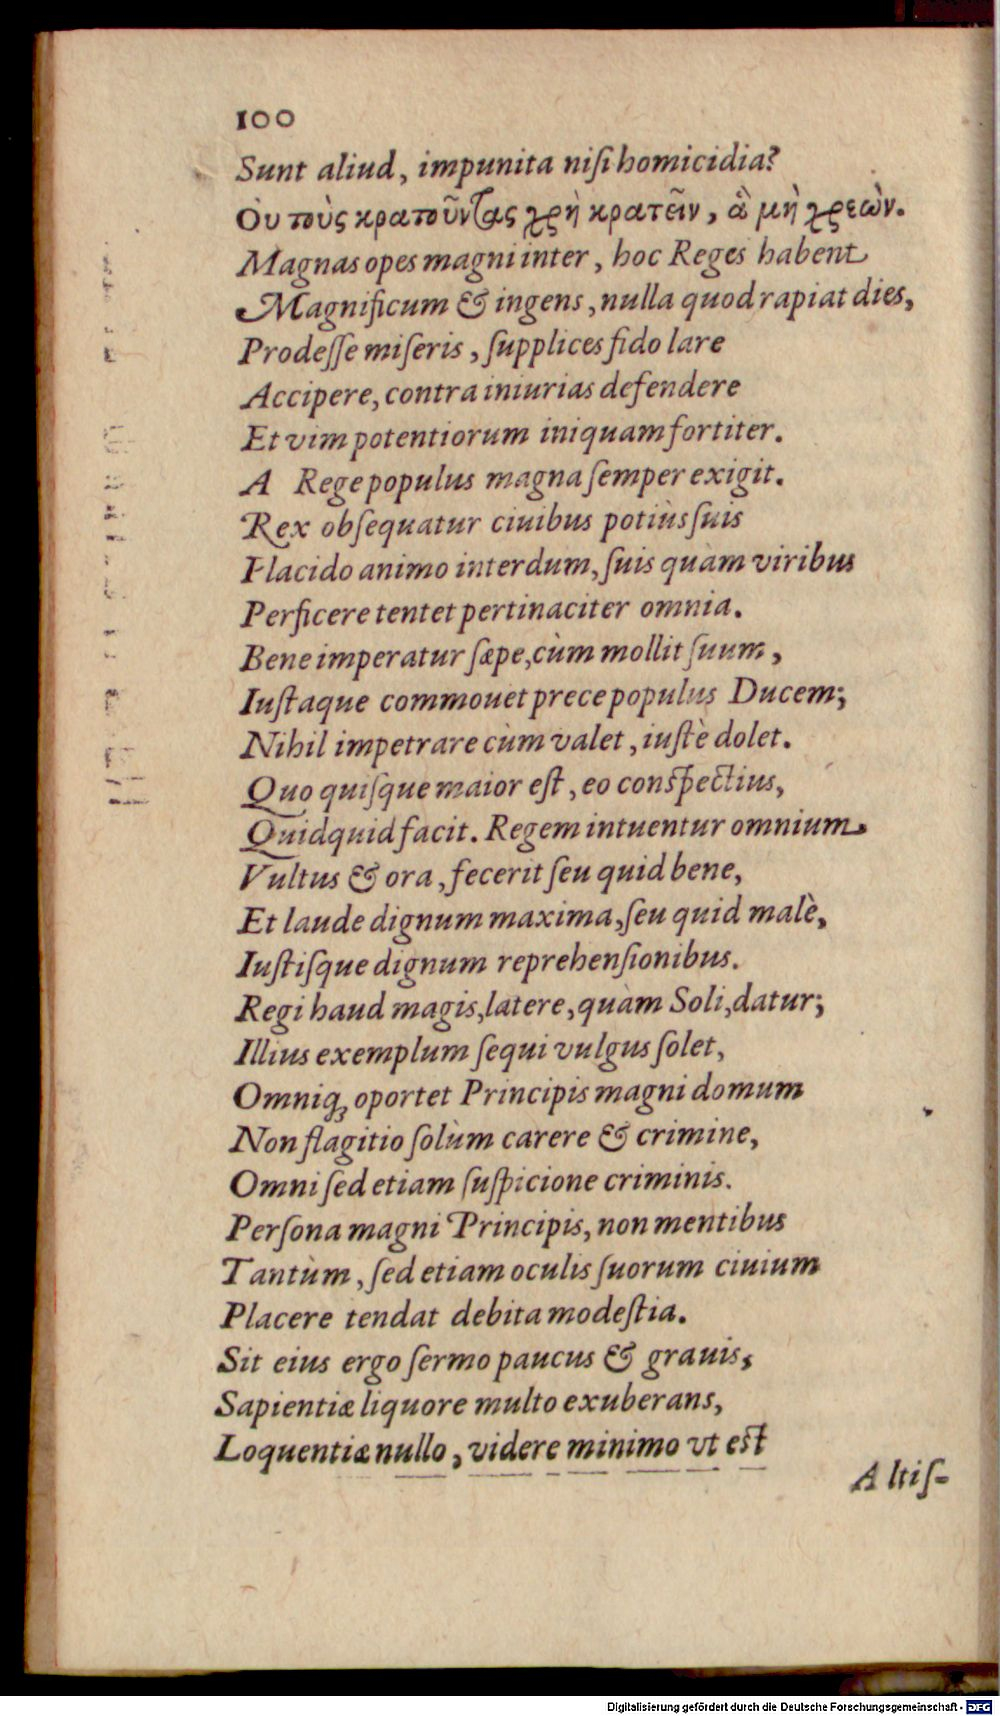 100
Sunt aliud, impunita niſi homicidia?
Ὀυ τοὺς κρατοῦντας χρὴ κρατεῖν, ἃ μὴ χρεών.
Magnas opes magni inter, hoc Reges habent
Magnificum & ingens, nulla quod rapiat dies,
Prodeſſe miſeris, ſupplices fido lare
Accipere, contra iniurias defendere
Et vim potentiorum iniquam fortiter.
A Rege populus magna ſemper exigit.
Rex obſequatur ciuibus potiùs ſuis
Placido animo interdum, ſuis quàm viribus
Perficere tentet pertinaciter omnia.
Bene imperatur ſæpe, cùm mollit ſuum,
Iuſtaque commouet prece populus Ducem;
Nihil impetrare cùm valet, iuſtè dolet.
Quo quiſque maior eſt, eo conſpectius,
Quidquid facit. Regem intuentur omnium
Vultus & ora, fecerit ſeu quid bene,
Et laude dignum maxima, ſeu quid malè,
Iuſtiſque dignum reprehenſionibus.
Regi haud magis, latere, quàm Soli, datur;
Illius exemplum ſequi vulgus ſolet,
Omniq; oportet Principis magni domum
Non flagitio ſolùm carere & crimine,
Omni ſed etiam ſuſpicione criminis.
Perſona magni Principis, non mentibus
Tantùm, ſed etiam oculis ſuorum ciuium
Placere tendat debita modeſtia.
Sit eius ergo ſermo paucus & grauis,
Sapientiæ liquore multo exuberans,
Loquentiæ nullo, videre minimo vt eſt
Altiſ-
Digitalisierung gefördert durch die Deutsche Forschungsgemeinschaft - DFG